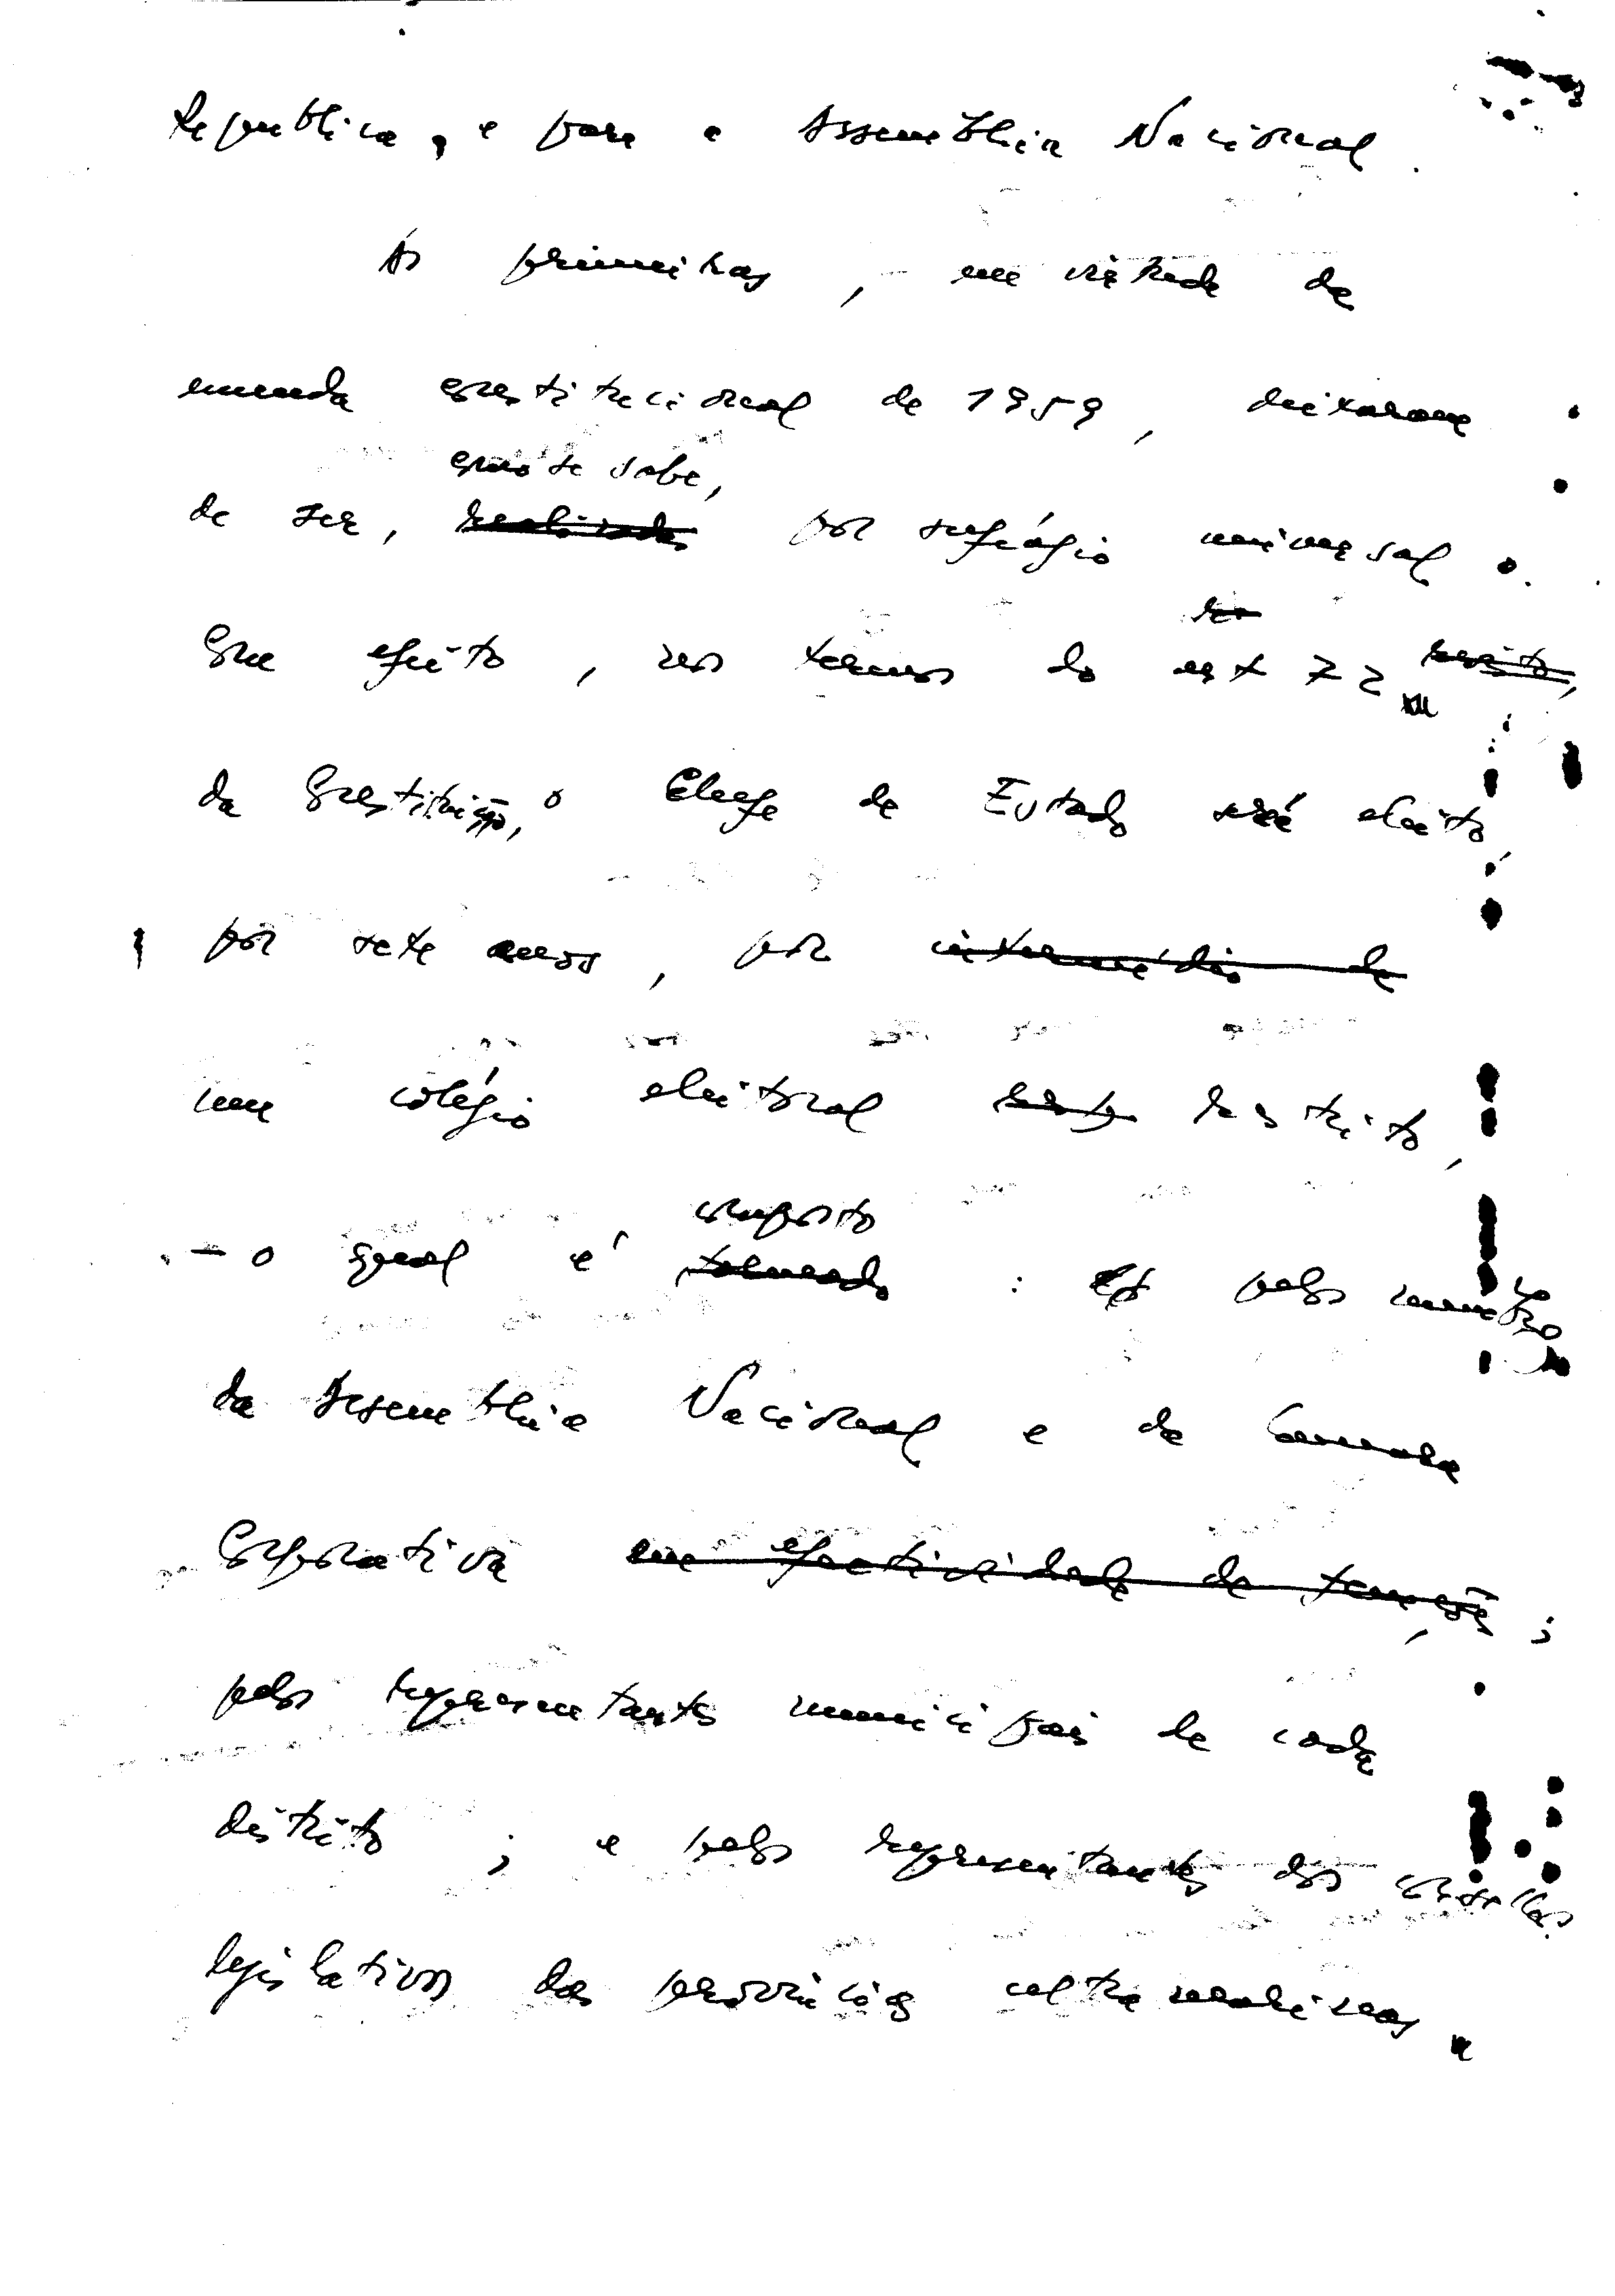 Republica, e para a Assembleia Nacional.
As primeiras, em virtude da
emenda constitucional de 1959, deixaram
como se sabe,
de ser, realizadas por sufrágio universal.
Com efeito, nos termos do art 72
da Constituição, o Chefe de Estado será eleito,
por sete anos, por intermédio de
um colégio eleitoral restrito,
composto
- o qual é formado : pelos membros
da Assembleia Nacional e da Camara
Corporativa em efectividade de funções;
pelos representantes municipais de cada
distrito ; e pelos representantes dos conselhos
legislativos das províncias ultramarinas.